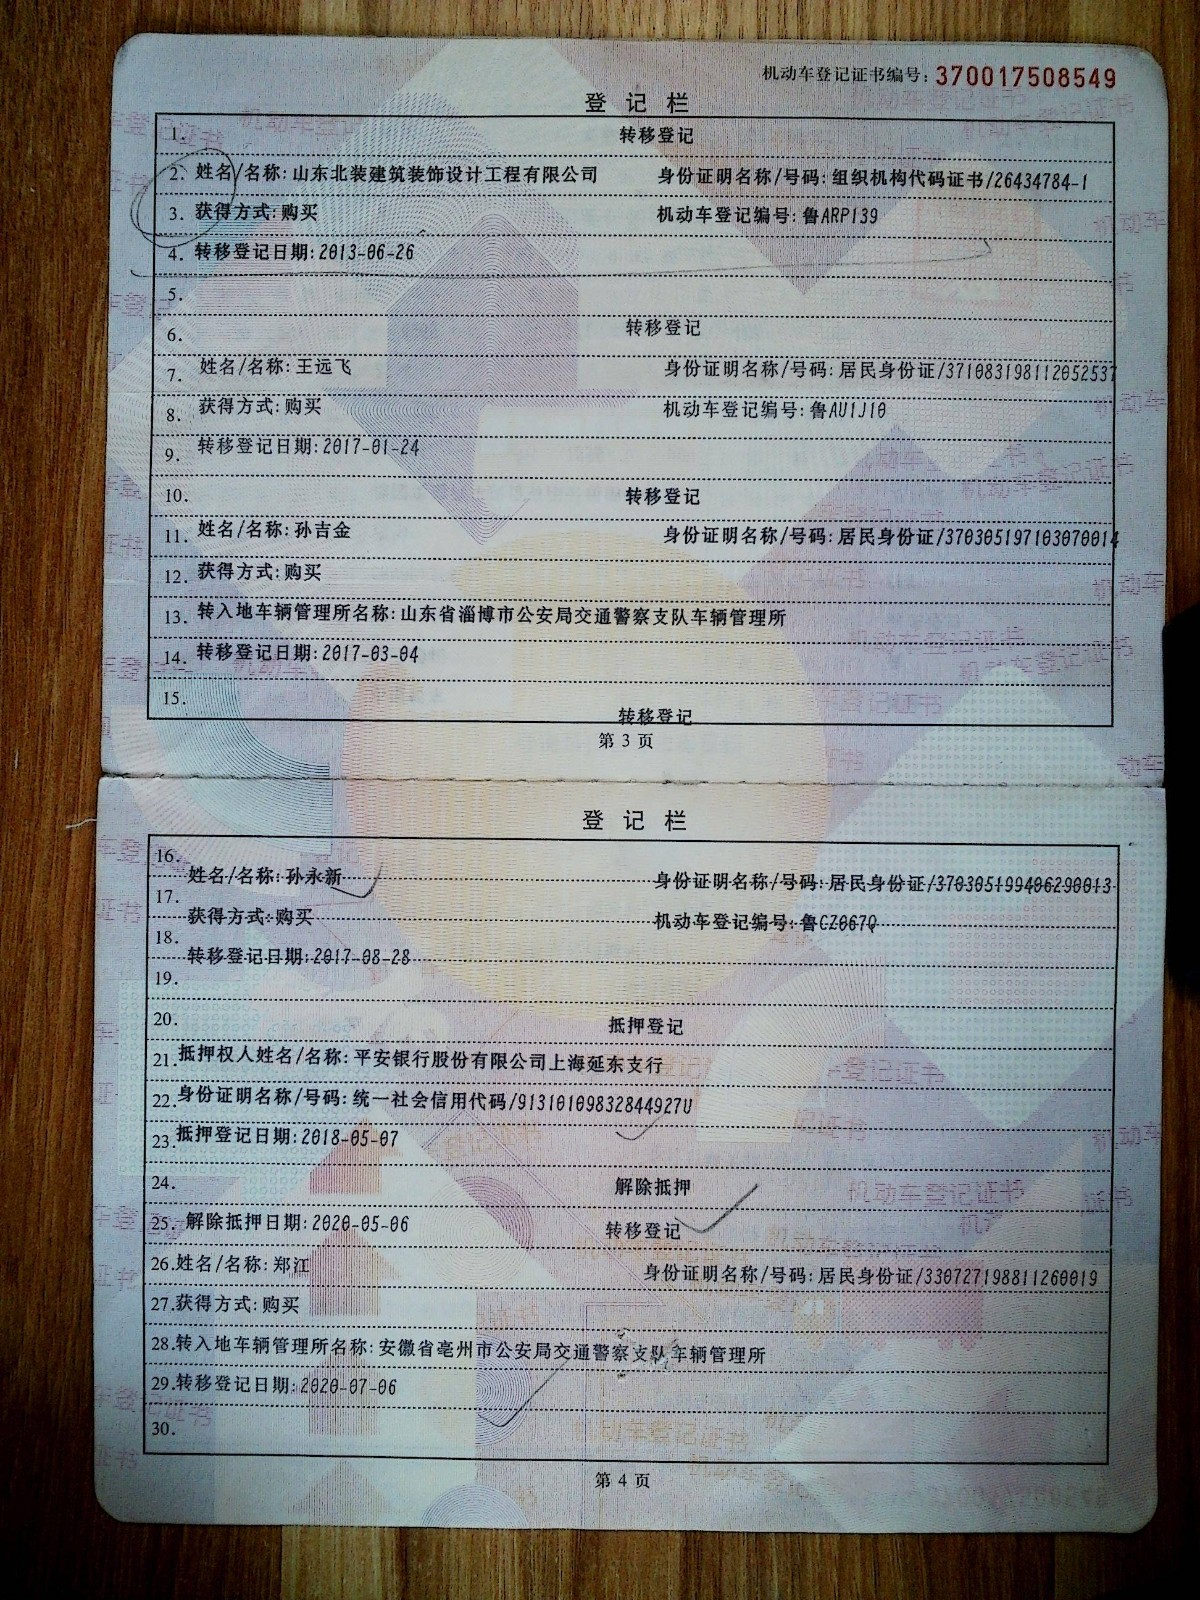 机动车登记证书编号: 370017508549
登 记 栏
1. 转移登记
2. 姓名/名称: 山东北装建筑装饰设计工程有限公司 身份证明名称/号码: 组织机构代码证书/26434784-1
3. 获得方式: 购买 机动车登记编号: 鲁ARP139
4. 转移登记日期: 2013-06-26
5.
6. 转移登记
7. 姓名/名称: 王远飞 身份证明名称/号码: 居民身份证/371083198112052537
8. 获得方式: 购买 机动车登记编号: 鲁AU1J10
9. 转移登记日期: 2017-01-24
10. 转移登记
11. 姓名/名称: 孙吉金 身份证明名称/号码: 居民身份证/370305197103070014
12. 获得方式: 购买
13. 转入地车辆管理所名称: 山东省淄博市公安局交通警察支队车辆管理所
14. 转移登记日期: 2017-03-04
15.
转移登记
第 3 页
登 记 栏
16.
姓名/名称: 孙永新 身份证明名称/号码: 居民身份证/370305199406290013
17.
获得方式: 购买 机动车登记编号: 鲁CZ067Q
18.
转移登记日期: 2017-08-28
19.
20. 抵押登记
21. 抵押权人姓名/名称: 平安银行股份有限公司上海延东支行
22. 身份证明名称/号码: 统一社会信用代码/91310109832844927U
23. 抵押登记日期: 2018-05-07
24. 解除抵押
25. 解除抵押日期: 2020-05-06 转移登记
26. 姓名/名称: 郑江 身份证明名称/号码: 居民身份证/330727198811260019
27. 获得方式: 购买
28. 转入地车辆管理所名称: 安徽省亳州市公安局交通警察支队车辆管理所
29. 转移登记日期: 2020-07-06
30.
第 4 页